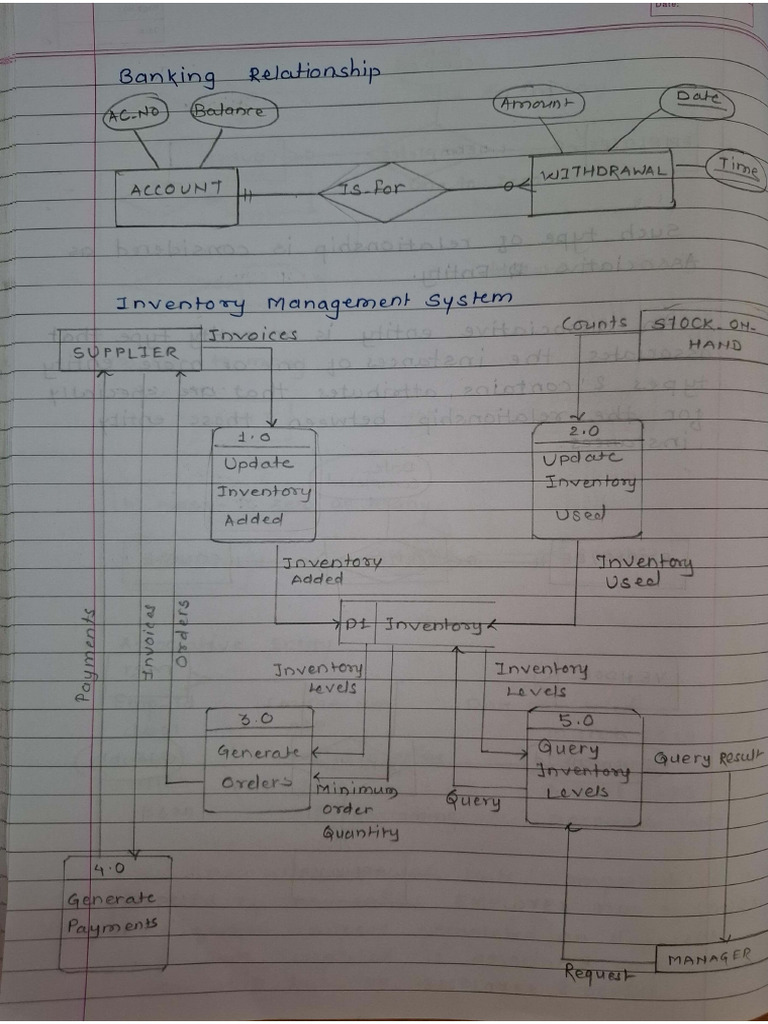 Date:
Banking Relationship
AC-NO Balance Amount Date
Time
ACCOUNT Is-for WITHDRAWAL
Inventory Management System
SUPPLIER
Invoices
Counts
STOCK-ON-
HAND
1.0
Update
Inventory
Added
2.0
Update
Inventory
Used
Inventory
Added
Inventory
Used
D1 Inventory
Payments
Invoices
Orders
Inventory
Levels
Inventory
Levels
3.0
Generate
Orders
5.0
Query
Inventory
Levels
Query Result
Minimum
Order
Quantity
Query
4.0
Generate
Payments
MANAGER
Request